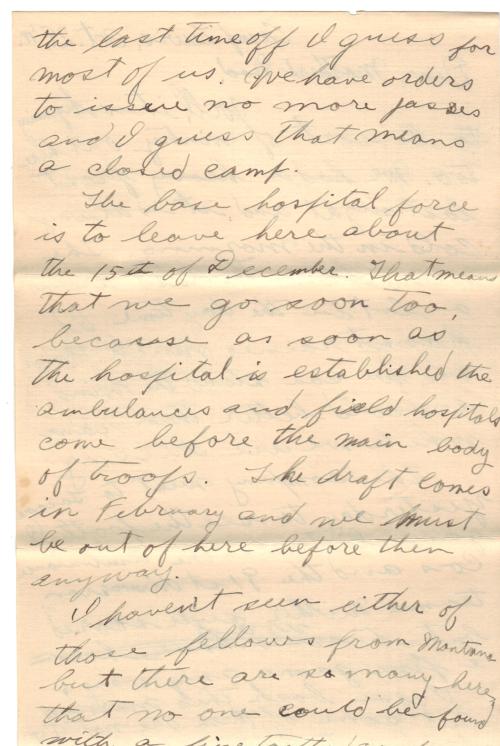 the last time off I guess for
most of us. We have orders
to issue no more passes
and I guess that means
a closed camp.
The base hospital force
is to leave here about
the 15th of December. That means
that we go soon too,
because as soon as
the hospital is established the
ambulances and field hospitals
come before the main body
of troops. The draft comes
in February and we must
be out of here before then
anyway.
I haven't seen either of
those fellows from Montana
but there are so many here,
that no one could be found
with a fine